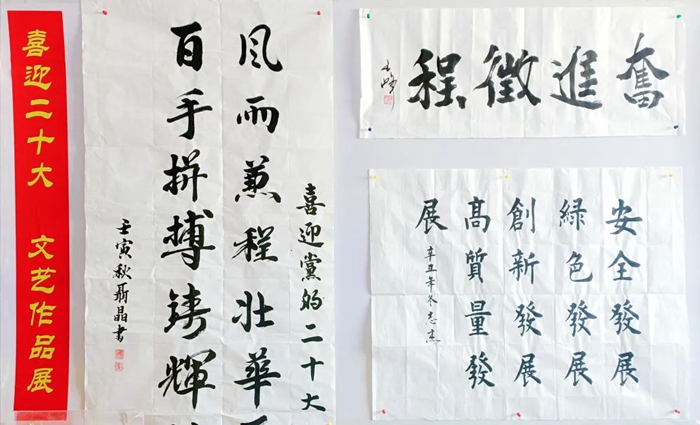 喜迎二十大 文艺作品展
喜迎黨的二十大
风雨兼程壮華
百年拼搏铸輝
壬寅秋聶晶書
奮進徵程
安全發展
綠色發展
創新發展
高質量發
展
辛丑年冬志杰